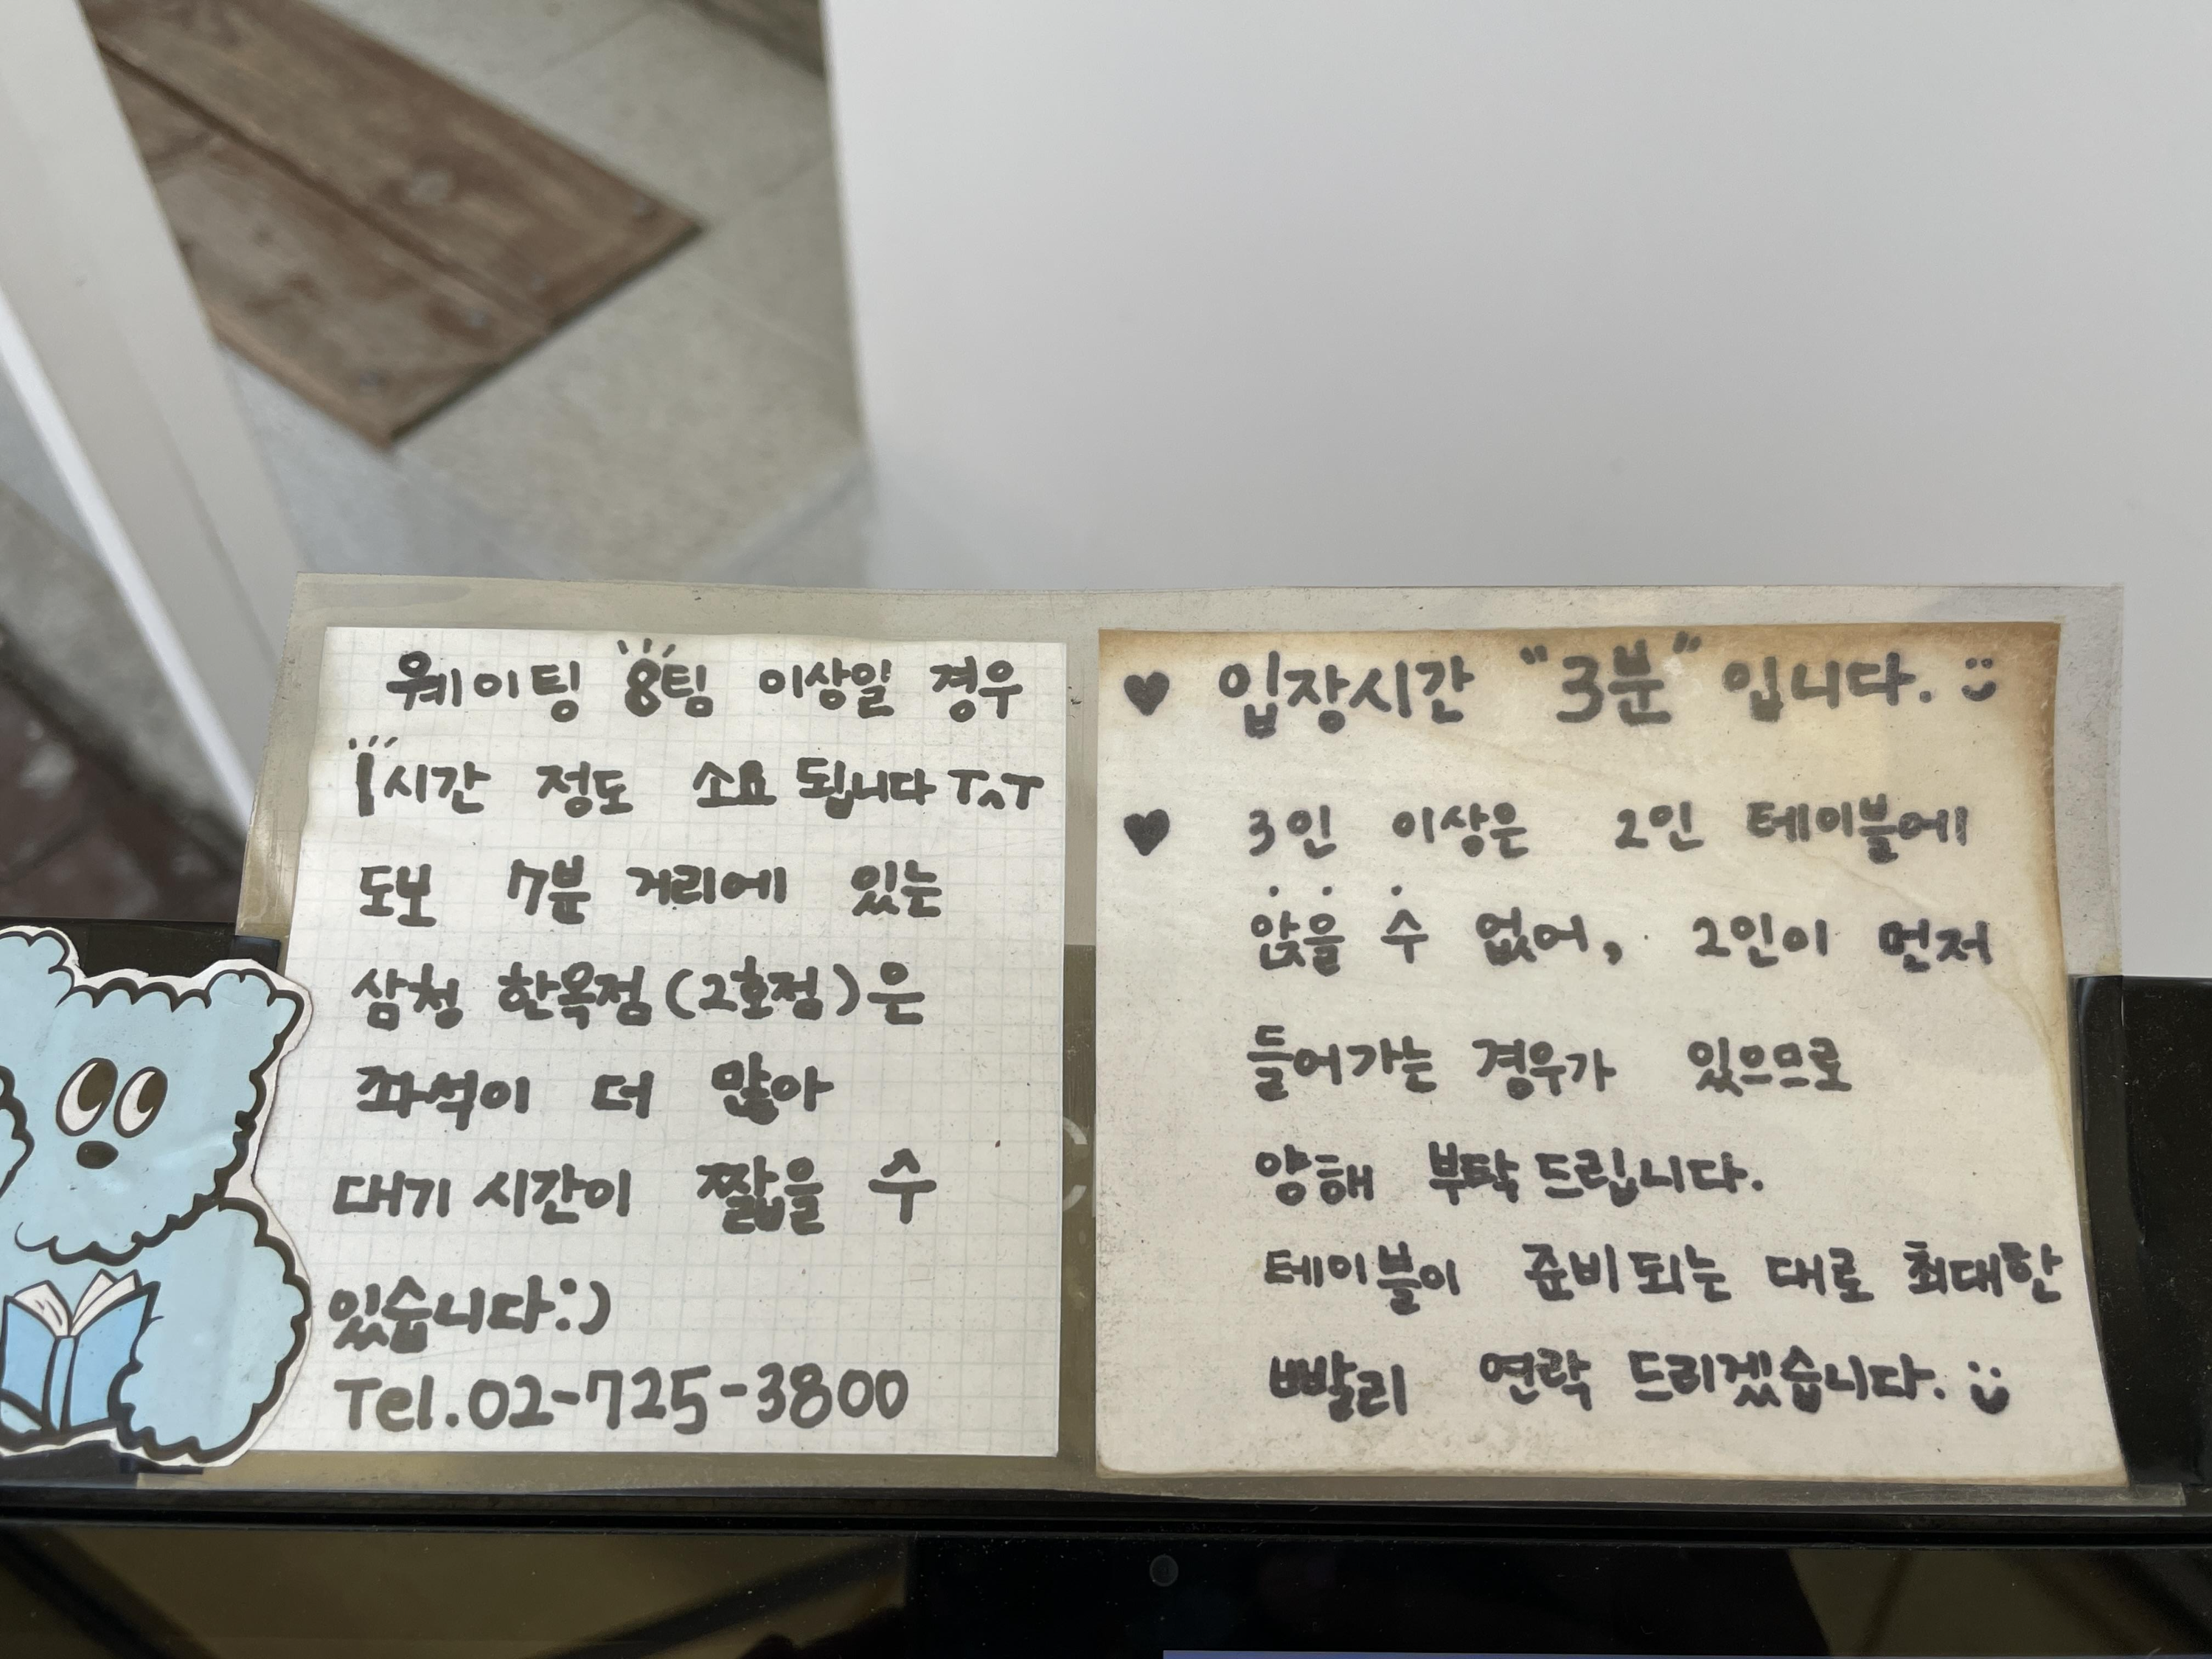 웨이팅 8팀 이상일 경우
1시간 정도 소요 됩니다 ㅜㅅㅜ
도보 7분 거리에 있는
삼청 한옥점(2호점)은
좌석이 더 많아
대기 시간이 짧을 수
있습니다:)
Tel.02-725-3800
♥ 입장시간 "3분" 입니다.
♥ 3인 이상은 2인 테이블에
앉을 수 없어, 2인이 먼저
들어가는 경우가 있으므로
양해 부탁드립니다.
테이블이 준비되는 대로 최대한
빨리 연락 드리겠습니다.